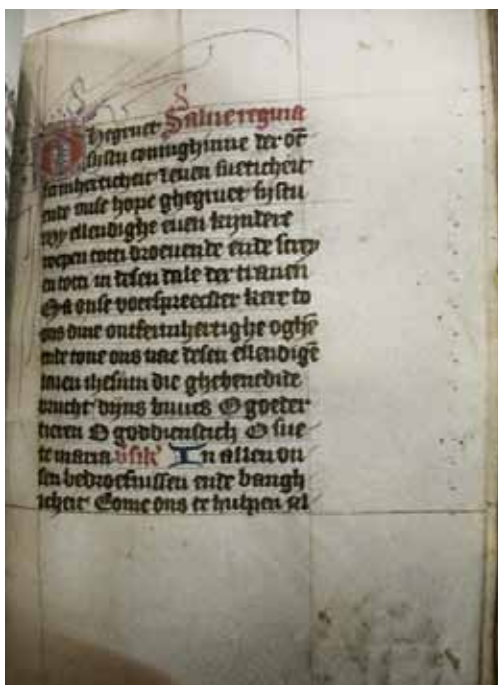 O hegruet Salue regina
sijstu coninghinne der ōt
fermherticheit leuen sueticheit
ende onse hope ghegruet sijstu
wy ellendighe euen kijndere
roepen totti droeuende ende screy
en totti in desen dale der tranen
O a onse voerspreecster kere to
ons dine ontfermhertighe oghē
ende tone ons nae desen ellendigē
ihesum die ghebenedide
vrucht dijns buucs O goeder
tieren O goddienstich O sue
te maria In allen on
sen bedroefnissen ende bangh
icheit Come ons te hulpen